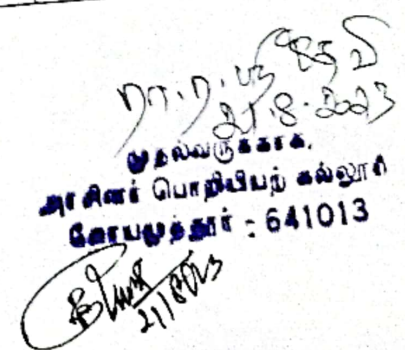 21.8.2023
முதல்வருக்காக,
அரசினர் பொறியியற் கல்லூரி
கோயமுத்தூர் - 641013
21/8/23